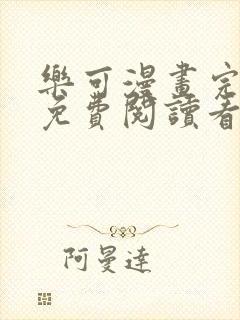 樂可漫畫完
免費閱讀看
阿曼達